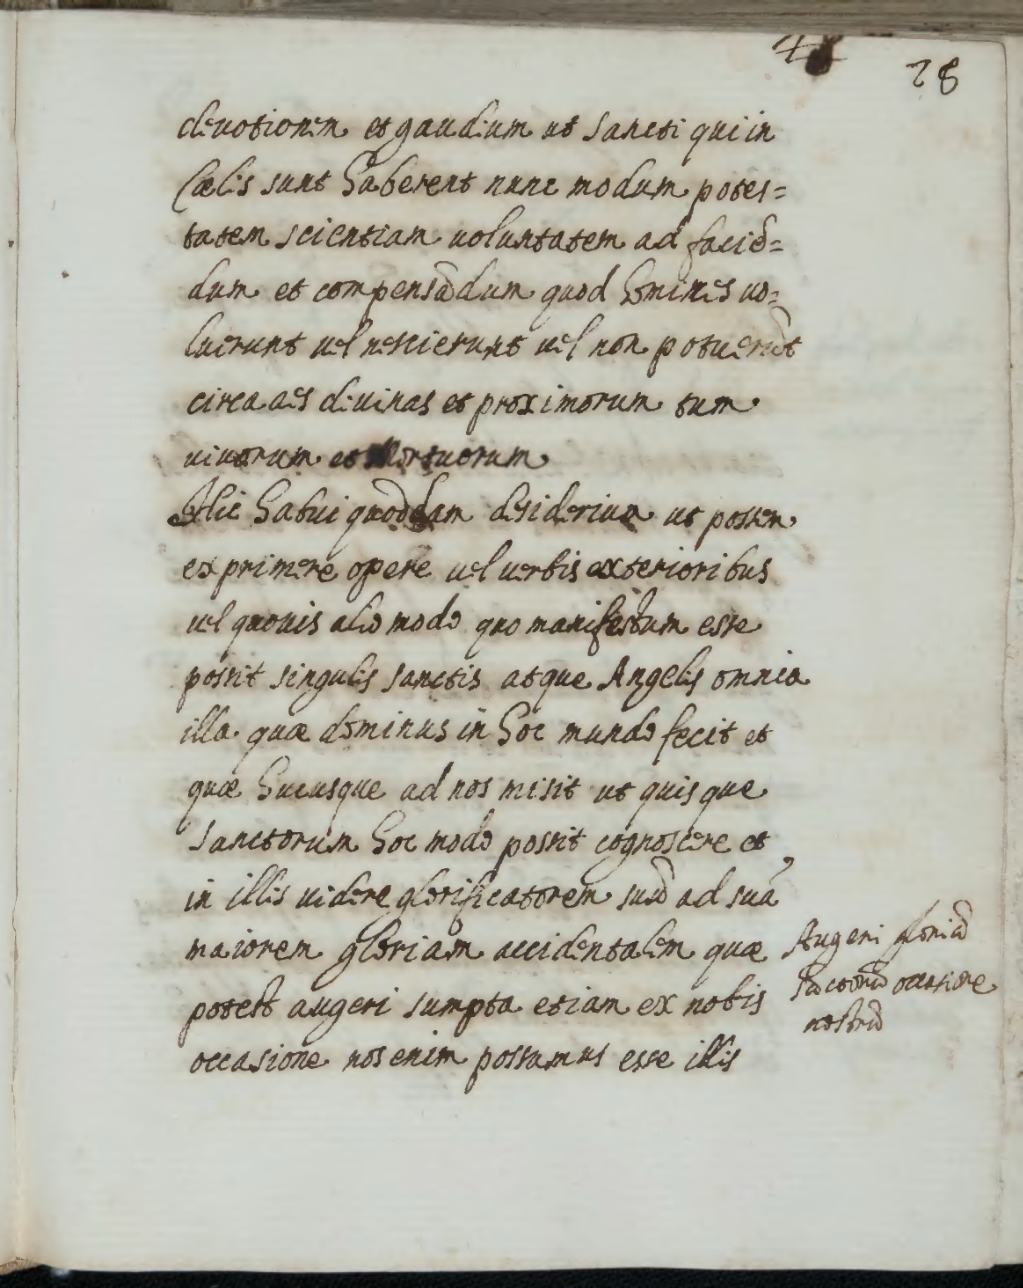 28
deuotionem et gaudium ut sancti qui in
Cælis sunt haberent nunc modum potes=
tatem scientiam uoluntatem ad faciē=
dum et compensādum quod homines uo=
luerunt uel nescierunt uel non potuerūt
circa aēs diuinas et proximorum tum
uiuorum et Mortuorum
Hic habui quoddam desiderium ut possem
exprimere opere uel uerbis exterioribus
uel quouis alio modo quo manifestum esse
possit singulis sanctis atque Angelis omnia
illa quæ dominus in hoc mundo fecit et
quæ hucusque ad nos misit ut quisque
sanctorum hoc modo possit cognoscere et
in illis uidere glorificatorem suū ad suā
maiorem gloriam accidentalem quæ
potest augeri sumpta etiam ex nobis
occasione nos enim possumus esse illis
Augeri gloriā
sāctorū occasione
nostrū